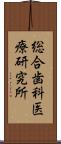 総合歯科医
療研究所